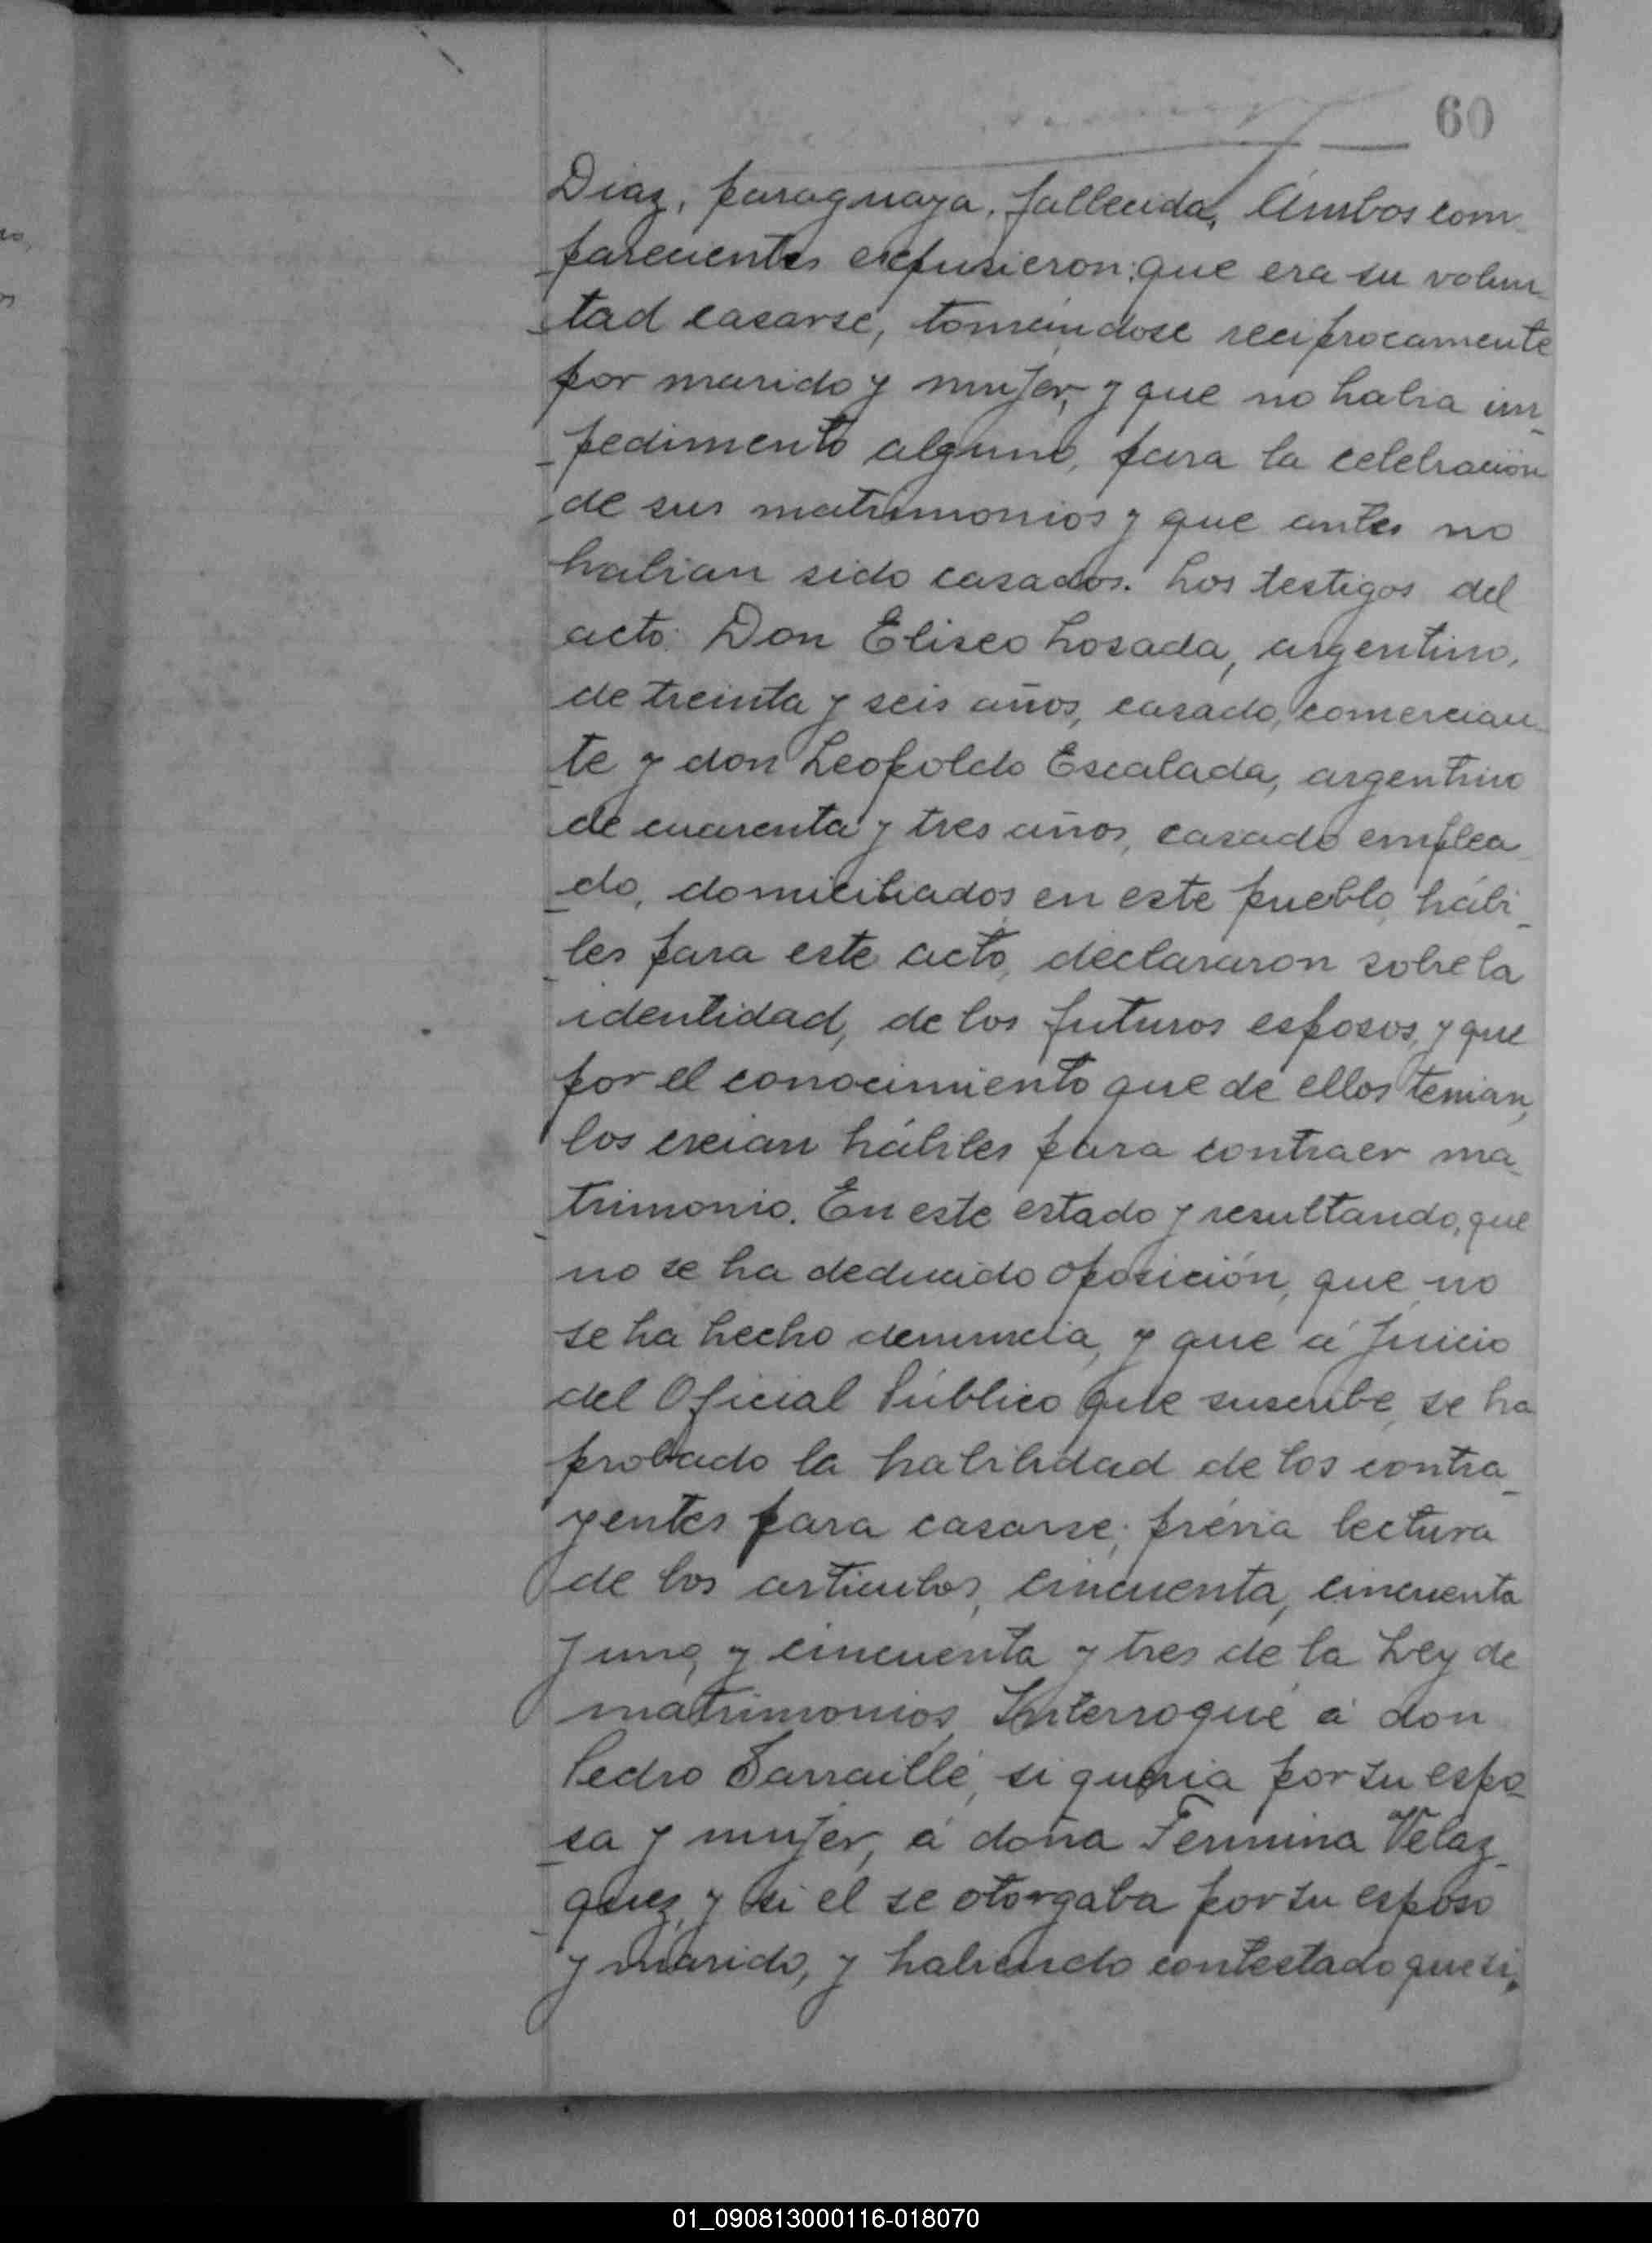 60
Diaz, paraguaya, fallecida, Ámbos com-
-parecientes expusieron: que era su volun-
-tad casarse, tomándose reciprocamente
por marido y mujer, y que no habia im-
-pedimento alguno, para la celebración
de sus matrimonios y que antes no
habian sido casados. Los testigos del
acto: Don Eliseo Losada, argentino,
de treinta y seis años, casado, comercian-
-te y don Leopoldo Escalada, argentino
de cuarenta y tres años, casado emplea-
-do, domiciliados en este pueblo, hábi-
-les para este acto, declararon sobre la
identidad, de los futuros esposos, y que
por el conocimiento que de ellos tenian,
los creian hábiles para contraer ma-
-trimonio. En este estado y resultando, que
no se ha deducido oposición, que no
se ha hecho denuncia, y que á juicio
del Oficial Público que suscribe, se ha
probado la habilidad de los contra-
yentes para casarse; prévia lectura
de los articulos, cincuenta, cincuenta
y uno, y cincuenta y tres de la Ley de
matrimonios, Interrogué á don
Pedro Sarraillé, si queria por su espo-
-sa y mujer, á doña Fermina Velaz-
-quez, y si el se otorgaba por su esposo
y marido, y habiendo contestado que si,
01_090813000116-018070